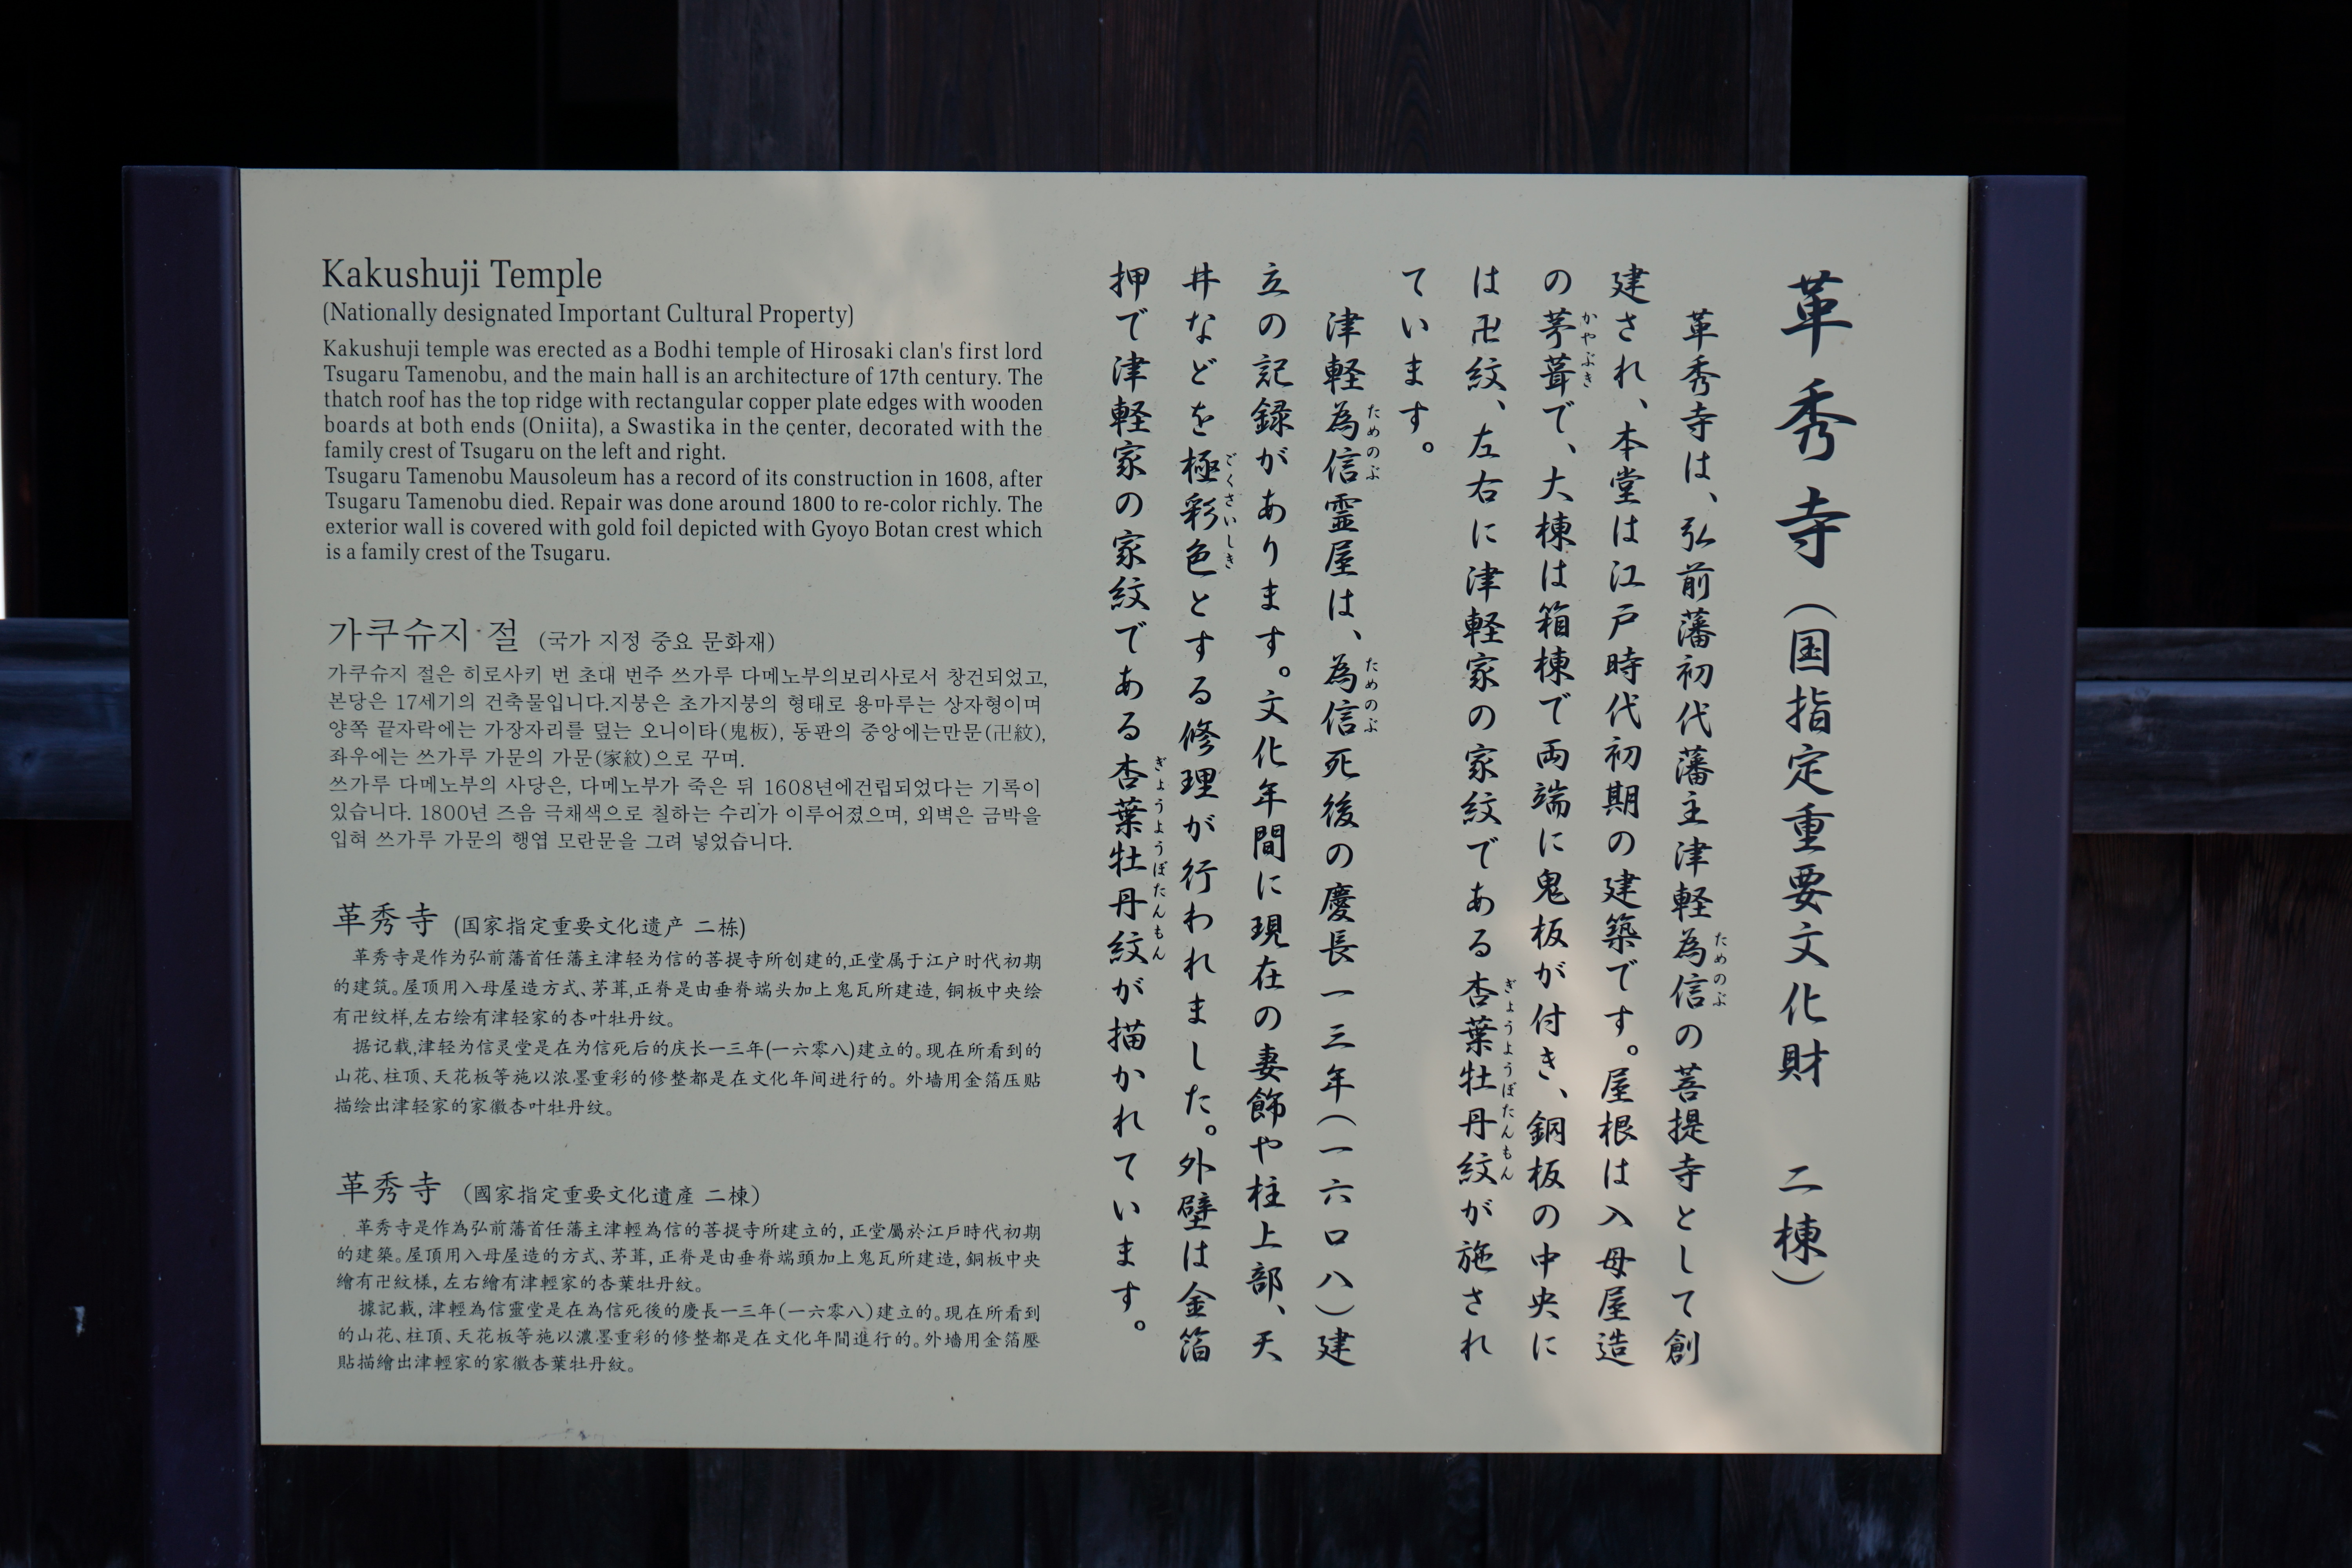 革秀寺（国指定重要文化財　二棟）
革秀寺は、弘前藩初代藩主津軽為信の菩提寺として創
建され、本堂は江戸時代初期の建築です。屋根は入母屋造
の茅葺で、大棟は箱棟で両端に鬼板が付き、銅板の中央に
は卍紋、左右に津軽家の家紋である杏葉牡丹紋が施され
ています。
津軽為信霊屋は、為信死後の慶長一三年（一六〇八）建
立の記録があります。文化年間に現在の妻飾や柱上部、天
井などを極彩色とする修理が行われました。外壁は金箔
押で津軽家の家紋である杏葉牡丹紋が描かれています。
ためのぶ
かやぶき
ぎょうようぼたんもん
ためのぶ
ためのぶ
ごくさいしき
ぎょうようぼたんもん
Kakushuji Temple
(Nationally designated Important Cultural Property)
Kakushuji temple was erected as a Bodhi temple of Hirosaki clan's first lord
Tsugaru Tamenobu, and the main hall is an architecture of 17th century. The
thatch roof has the top ridge with rectangular copper plate edges with wooden
boards at both ends (Oniita), a Swastika in the center, decorated with the
family crest of Tsugaru on the left and right.
Tsugaru Tamenobu Mausoleum has a record of its construction in 1608, after
Tsugaru Tamenobu died. Repair was done around 1800 to re-color richly. The
exterior wall is covered with gold foil depicted with Gyoyo Botan crest which
is a family crest of the Tsugaru.
가쿠슈지 절 (국가 지정 중요 문화재)
가쿠슈지 절은 히로사키 번 초대 번주 쓰가루 다메노부의보리사로서 창건되었고,
본당은 17세기의 건축물입니다.지붕은 초가지붕의 형태로 용마루는 상자형이며
양쪽 끝자락에는 가장자리를 덮는 오니이타(鬼板), 동판의 중앙에는만문(卍紋),
좌우에는 쓰가루 가문의 가문(家紋)으로 꾸며.
쓰가루 다메노부의 사당은, 다메노부가 죽은 뒤 1608년에건립되었다는 기록이
있습니다. 1800년 즈음 극채색으로 칠하는 수리가 이루어졌으며, 외벽은 금박을
입혀 쓰가루 가문의 행엽 모란문을 그려 넣었습니다.
革秀寺 (国家指定重要文化遗产 二栋)
革秀寺是作为弘前藩首任藩主津轻为信的菩提寺所创建的,正堂属于江户时代初期
的建筑。屋顶用入母屋造方式、茅葺,正脊是由垂脊端头加上鬼瓦所建造, 铜板中央绘
有卍纹样,左右绘有津轻家的杏叶牡丹纹。
据记载,津轻为信灵堂是在为信死后的庆长一三年(一六零八)建立的。现在所看到的
山花、柱顶、天花板等施以浓墨重彩的修整都是在文化年间进行的。外墙用金箔压贴
描绘出津轻家的家徽杏叶牡丹纹。
革秀寺 (國家指定重要文化遺產 二棟)
革秀寺是作為弘前藩首任藩主津輕為信的菩提寺所建立的, 正堂屬於江戶時代初期
的建築。屋頂用入母屋造的方式、茅葺, 正脊是由垂脊端頭加上鬼瓦所建造, 銅板中央
繪有卍紋樣, 左右繪有津輕家的杏葉牡丹紋。
據記載, 津輕為信靈堂是在為信死後的慶長一三年(一六零八)建立的。現在所看到
的山花、柱頂、天花板等施以濃墨重彩的修整都是在文化年間進行的。外墻用金箔壓
貼描繪出津輕家的家徽杏葉牡丹紋。